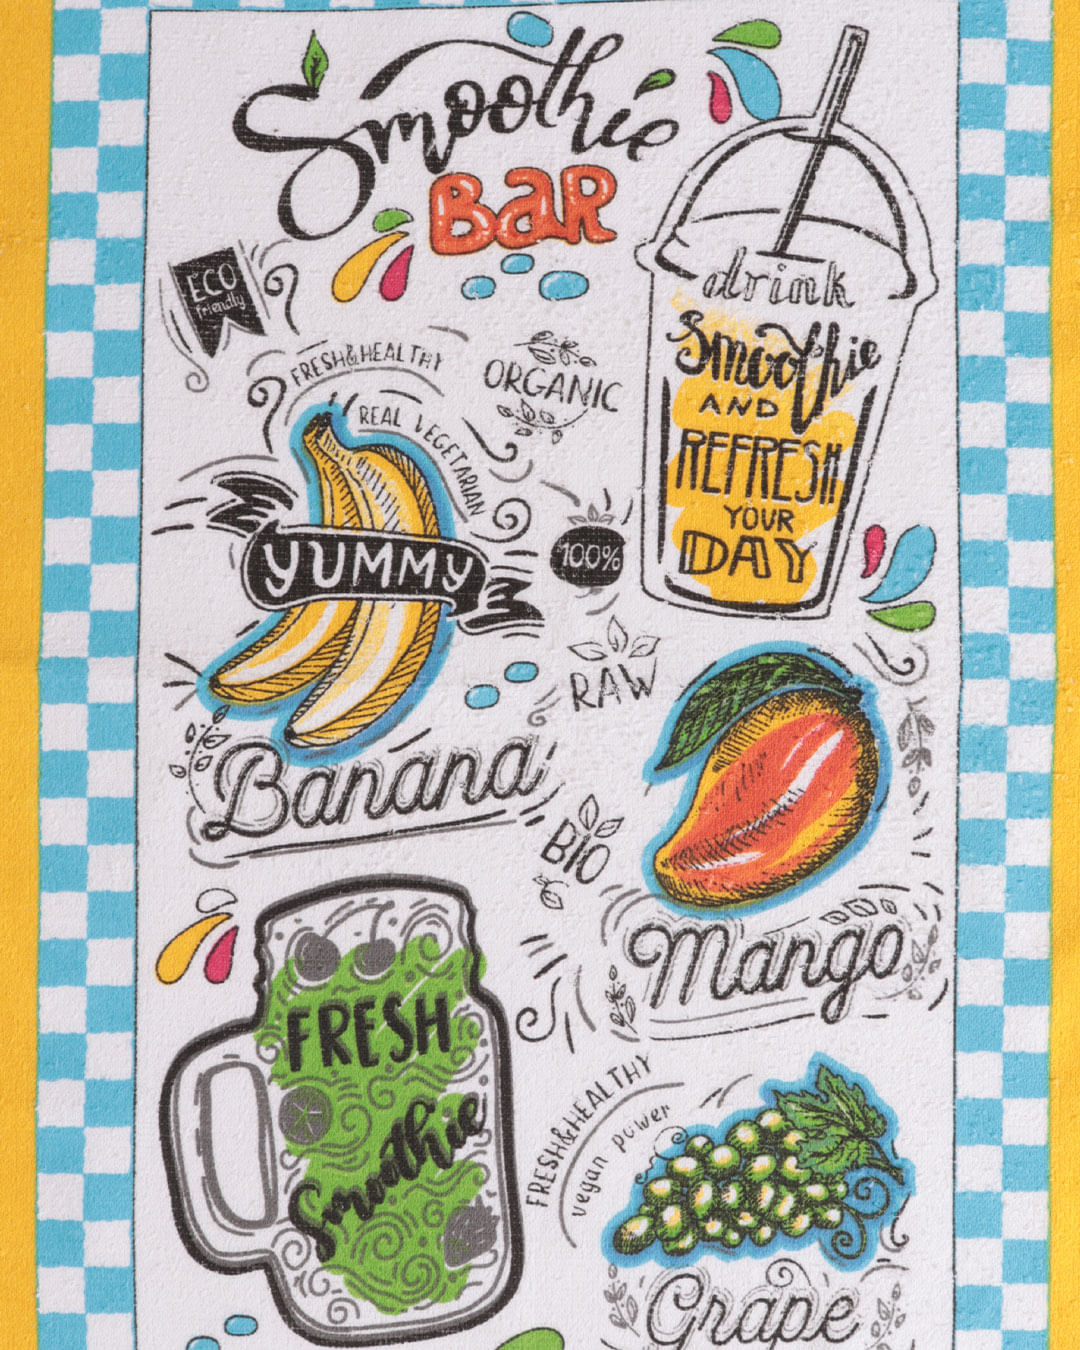 Smoothie
BAR
ECO
friendly
FRESH&HEALTHY
REAL VEGETARIAN
ORGANIC
drink
Smoothie
AND
REFRESH
YOUR
DAY
YUMMY
100%
RAW
Banana
BIO
Mango
FRESH
Smoothie
FRESH&HEALTHY
vegan power
Grape